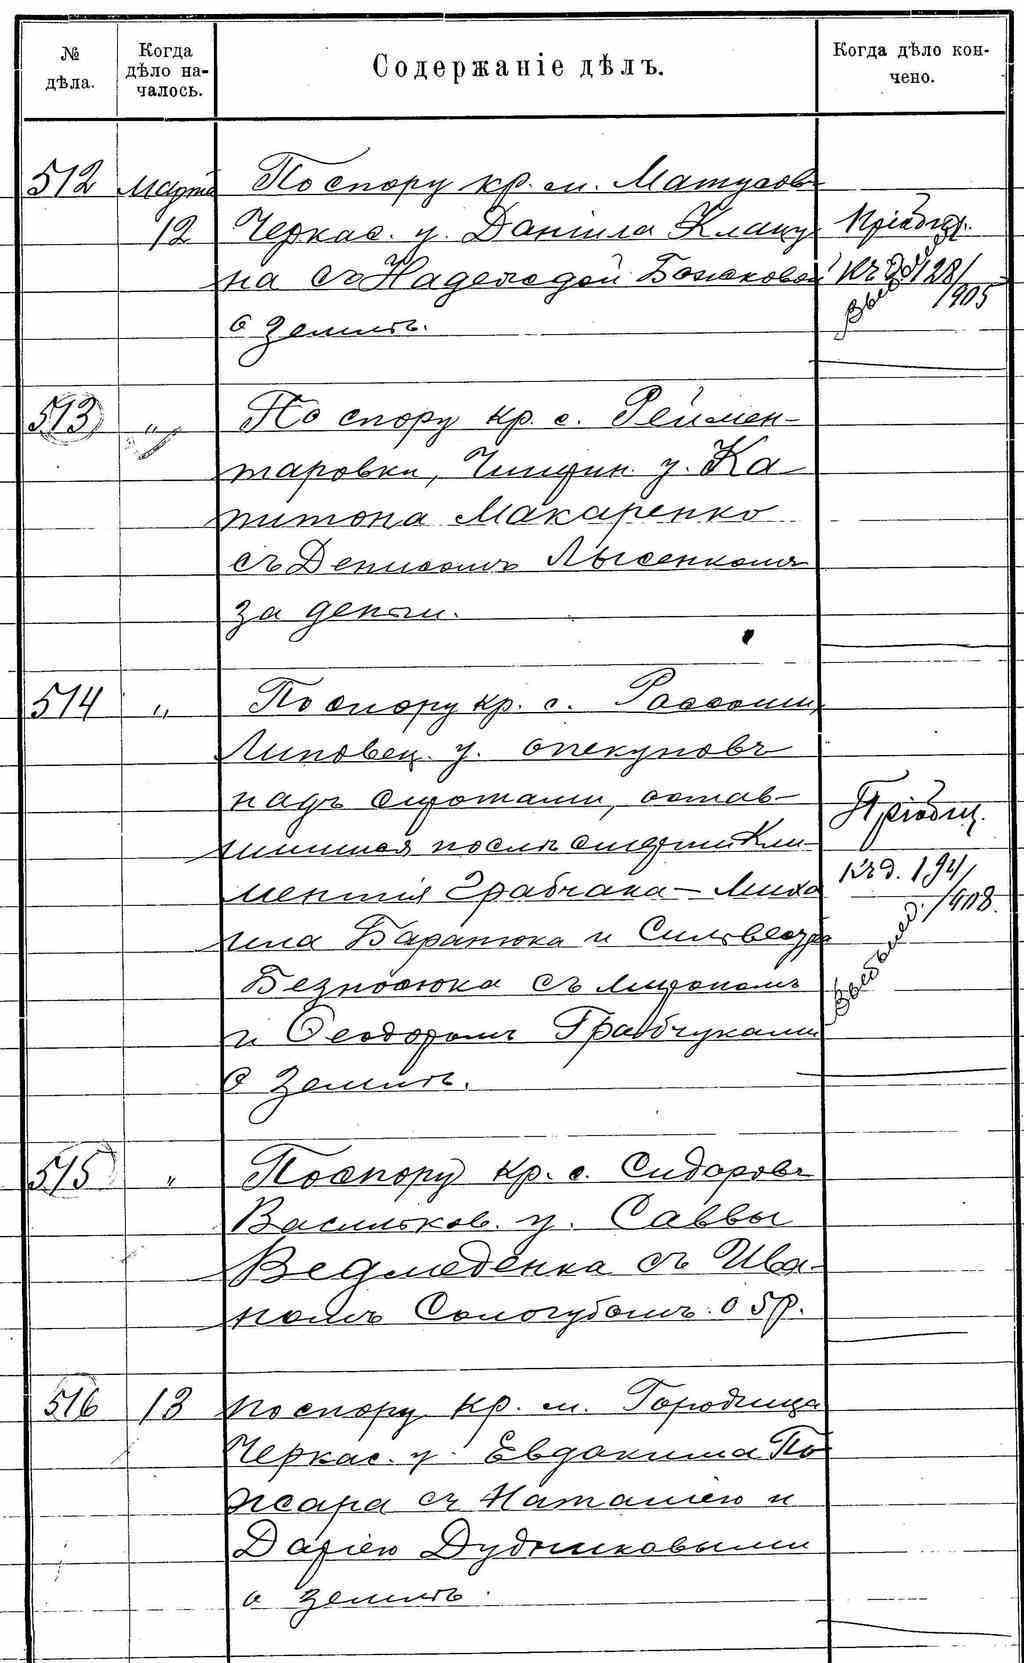 № дѣла.
Когда дѣло на-чалось.
Содержаніе дѣлъ.
Когда дѣло кон-чено.
512 Марта По спору кр. м. Матусовъ
12 Черкас. у. Даніила Клацу
на съ Надеждой Божковой
о землѣ.
Пріобщ.
къ д. 128/
905
513 „ По спору кр. с. Реймен-
таровки, Чигирин. у. Ка
питона Макаренко
съ Денисомъ Лысенкомъ
за деньги.
514 „ По спору кр. с. Россоши,
Липовец. у. опекуновъ
надъ сиротами, остав-
шимися послѣ смерти Кли-
ментія Грабчака - Миха
ила Баранюка и Сильвестра
Безносюка съ Мирономъ
и Ѳеодоромъ Грабчуками
о землѣ.
Пріобщ.
къ д. 194/
908.
515 „ По спору кр. с. Сидоровъ
Васильков. у. Саввы
Ведмеденка съ Ива-
номъ Сологубомъ о 5 р.
516 13 По спору кр. м. Городища
Черкас. у. Евдокима По
жара съ Наталіею и
Даріею Дудниковыми
о землѣ.